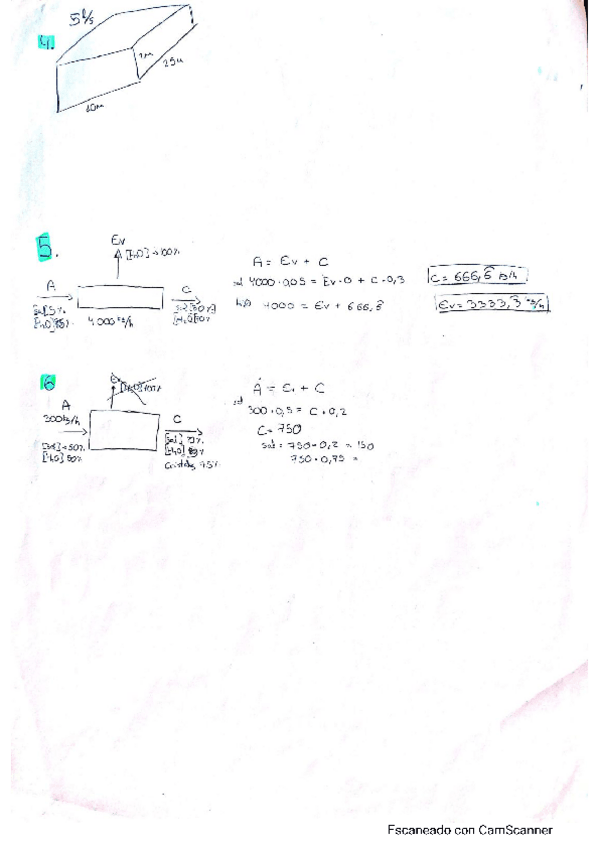 5 l/s
4.
1m
25m
10m
5.
Ev
[H2O] → 100%
A
C
[Sal] 5%
[H2O] 95%
4000 kg/h
[Sal] 30%
[H2O] 70%
A = Ev + C
sal 4000·0,05 = Ev·0 + C·0,3
H2O 4000 = Ev + 666,6
C = 666,6 kg/h
Ev = 3333,3 kg/h
6
A
300 kg/h
C
[Sal] = 50%
[H2O] 50%
Cristales 75%
A = Ev + C
sal
300·0,5 = C·0,2
C = 750
sal = 750·0,2 = 150
750·0,75 =
Escaneado con CamScanner